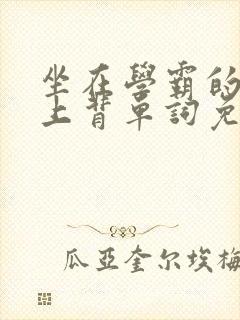 坐在學霸的
上背單詞免
瓜亞奎尔埃梅